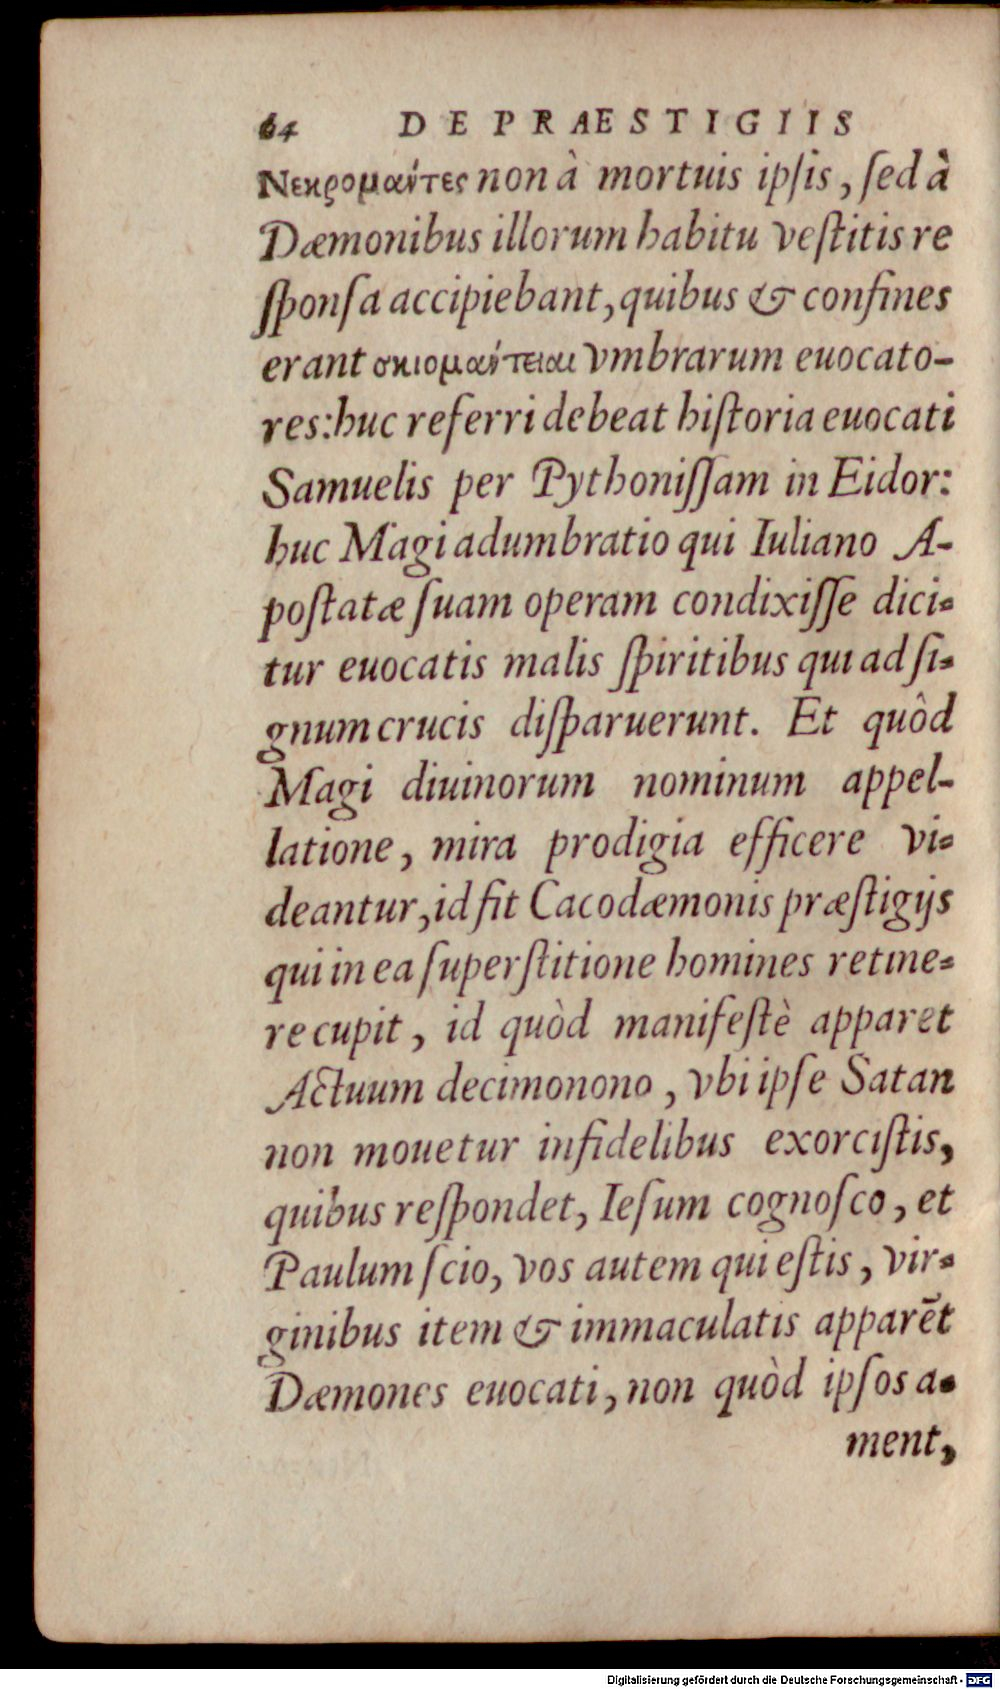 64 DE PRAESTIGIIS
Νεκρομαύτες non à mortuis ipſis, ſed à
Dæmonibus illorum habitu veſtitis re
ſponſa accipiebant, quibus & confines
erant σκιομαύτειαι vmbrarum euocato-
res: huc referri debeat hiſtoria euocati
Samuelis per Pythoniſſam in Eidor:
huc Magi adumbratio qui Iuliano A-
poſtatæ ſuam operam condixiſſe dici-
tur euocatis malis ſpiritibus qui ad ſi-
gnum crucis diſparuerunt. Et quòd
Magi diuinorum nominum appel-
latione, mira prodigia efficere vi-
deantur, id fit Cacodæmonis præſtigijs
qui in ea ſuperſtitione homines retine-
re cupit, id quòd manifeſtè apparet
Actuum decimonono, vbi ipſe Satan
non mouetur infidelibus exorciſtis,
quibus reſpondet, Ieſum cognoſco, et
Paulum ſcio, vos autem qui eſtis, vir-
ginibus item & immaculatis apparēt
Dæmones euocati, non quòd ipſos a-
ment,
Digitalisierung gefördert durch die Deutsche Forschungsgemeinschaft - DFG